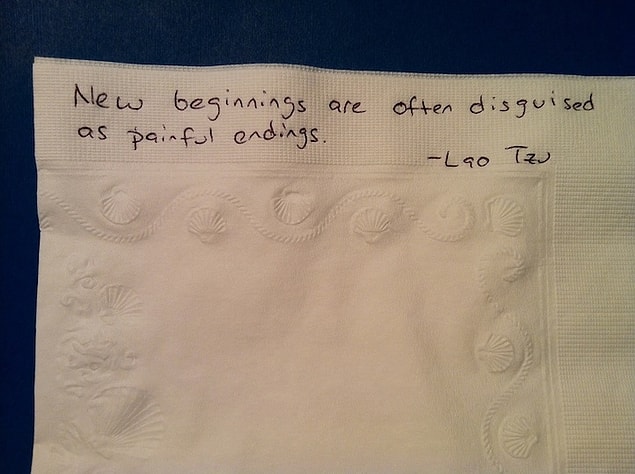 New beginnings are often disguised
as painful endings.
-Lao Tzu